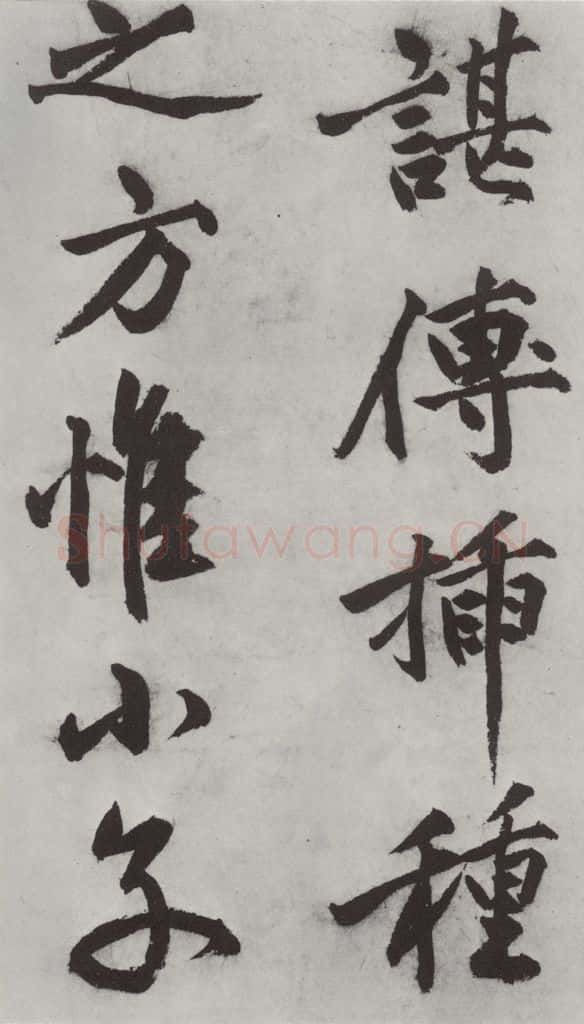 諶傳揷種
之方惟小子
Shufawang.CN